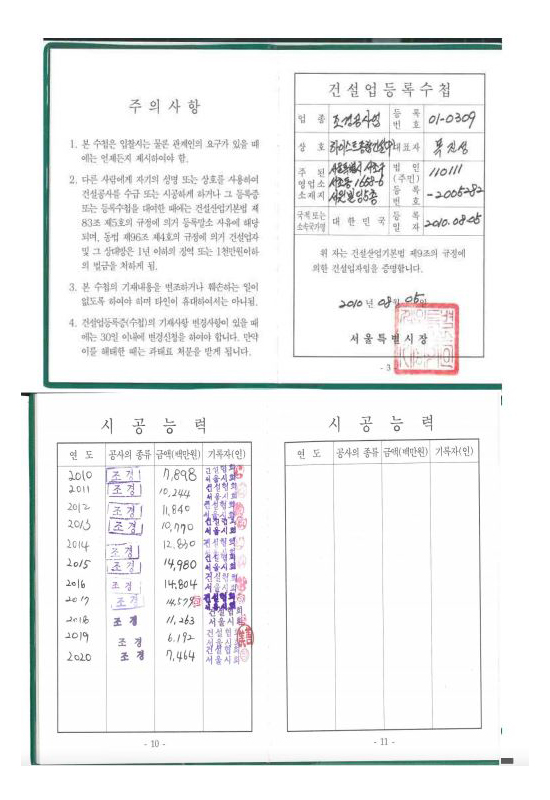 주 의 사 항
1. 본 수첩은 입찰시는 물론 관계인의 요구가 있을 때
에는 언제든지 제시하여야 함.
2. 다른 사람에게 자기의 성명 또는 상호를 사용하여
건설공사를 수급 또는 시공하게 하거나 그 등록증
또는 등록수첩을 대여한 때에는 건설산업기본법 제
83조 제5호의 규정에 의거 등록말소 사유에 해당
되며, 동법 제96조 제4호의 규정에 의거 건설업자
및 그 상대방은 1년 이하의 징역 또는 1천만원이하
의 벌금을 처하게 됨.
3. 본 수첩의 기재내용을 변조하거나 훼손하는 일이
없도록 하여야 하며 타인이 휴대하여서는 아니됨.
4. 건설업등록증(수첩)의 기재사항 변경사항이 있을 때
에는 30일 이내에 변경신청을 하여야 합니다. 만약
이를 해태한 때는 과태료 처분을 받게 됩니다.
건설업등록수첩
업 종 조경공사업 등 록 번 호 01-0309
상 호 대표자
주 된 영업소 소재지 서울특별시 서초구 서초동 1668-6 법 인 (주민) 등 록 번 호 110111
-2005282
국적 또는 소속국가명 대 한 민 국 등 록 일 자 2010.08.05
위 자는 건설산업기본법 제9조의 규정에
의한 건설업자임을 증명합니다.
2010 년 08 월 05 일
서 울 특 별 시 장
- 3 -
시 공 능 력
연 도 공사의 종류 금액(백만원) 기록자(인)
2010 조 경 7,898
2011 조 경 10,244
2012 조 경 11,840
2013 조 경 10,770
2014 조 경 12,830
2015 조 경 14,980
2016 조 경 14,804
2017 조 경 14,579
2018 조 경 11,263
2019 조 경 6,192
2020 조 경 7,464
- 10 -
시 공 능 력
연 도 공사의 종류 금액(백만원) 기록자(인)
- 11 -